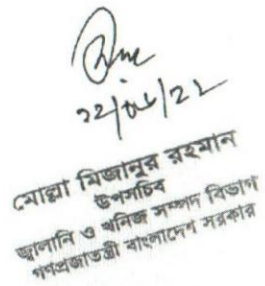 ২২/০৮/২২
মোল্লা মিজানুর রহমান
উপসচিব
জ্বালানি ও খনিজ সম্পদ বিভাগ
গণপ্রজাতন্ত্রী বাংলাদেশ সরকার